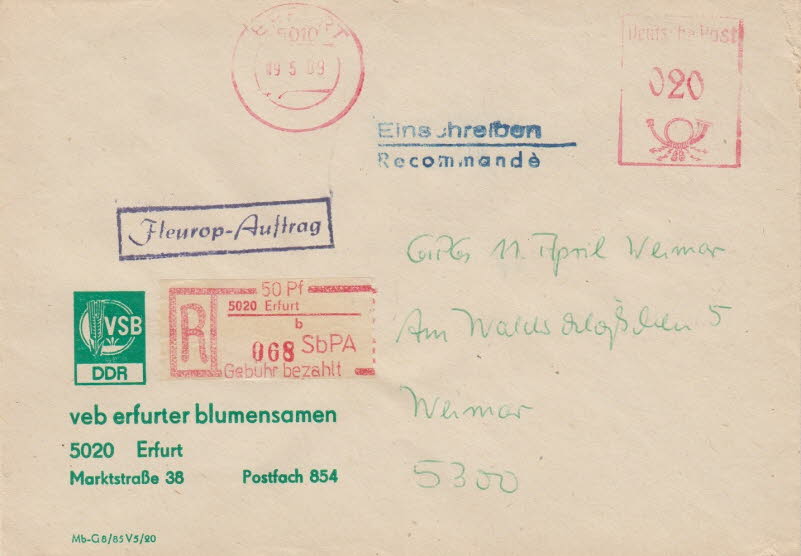 ERFURT
5010
09 5 89
Deutsche Post
020
Einschreiben
Recommandé
Fleurop-Auftrag
GPG 11. April Weimar
Am Waldschlößchen 5
Weimar
5300
50 Pf
5020 Erfurt
b
R
068 SbPA
Gebühr bezahlt
VSB
DDR
veb erfurter blumensamen
5020 Erfurt
Marktstraße 38 Postfach 854
Mb-G 8/85 V 5/20